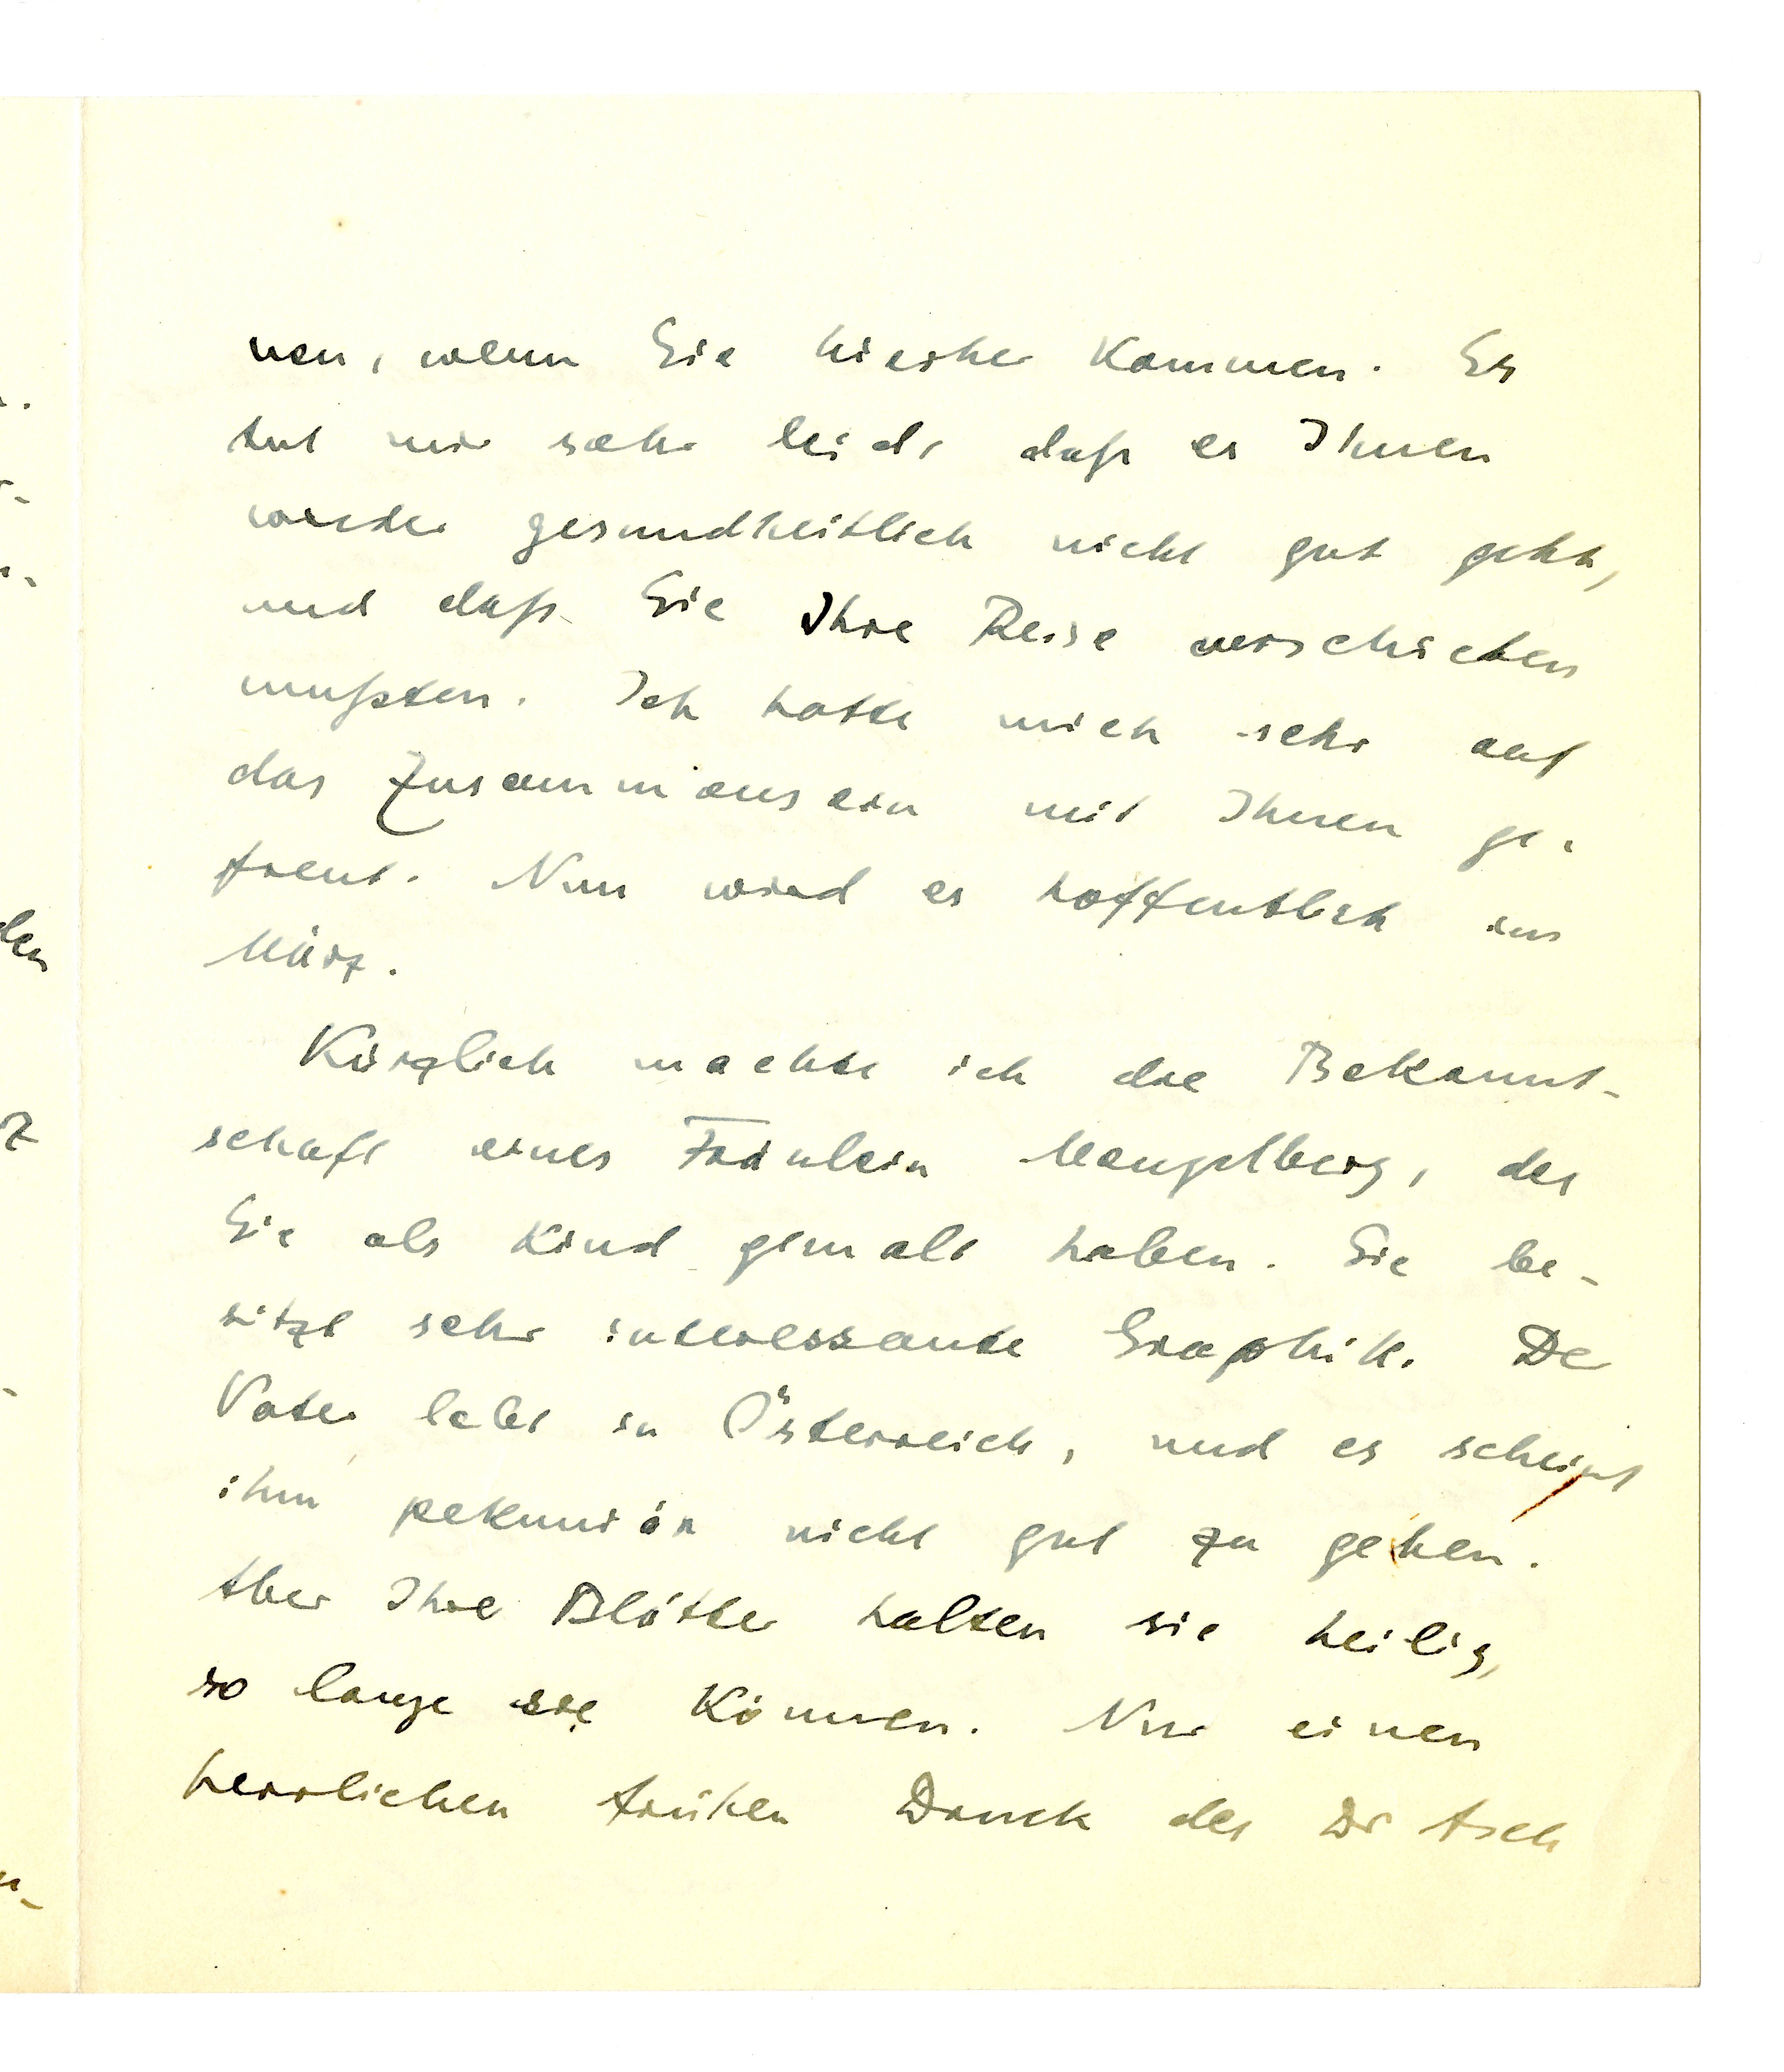 nen, wenn Sie hierher kommen. Es
tut mir sehr leid, daß es Ihnen
wieder gesundheitlich nicht gut geht,
und daß Sie Ihre Reise verschieben
mußten. Ich hatte mich sehr auf
das Zusammensein mit Ihnen ge-
freut. Nun wird es hoffentlich im
März.
Kürzlich machte ich die Bekannt-
schaft eines Fräulein Mengelberg, das
Sie als Kind gemalt haben. Sie be-
sitzt sehr interessante Graphik. Der
Vater lebt in Österreich, und es scheint
ihm pekuniär nicht gut zu gehen.
Aber Ihre Blätter halten sie heilig,
so lange sie können. Nur einen
herrlichen frühen Druck des Dr Asch